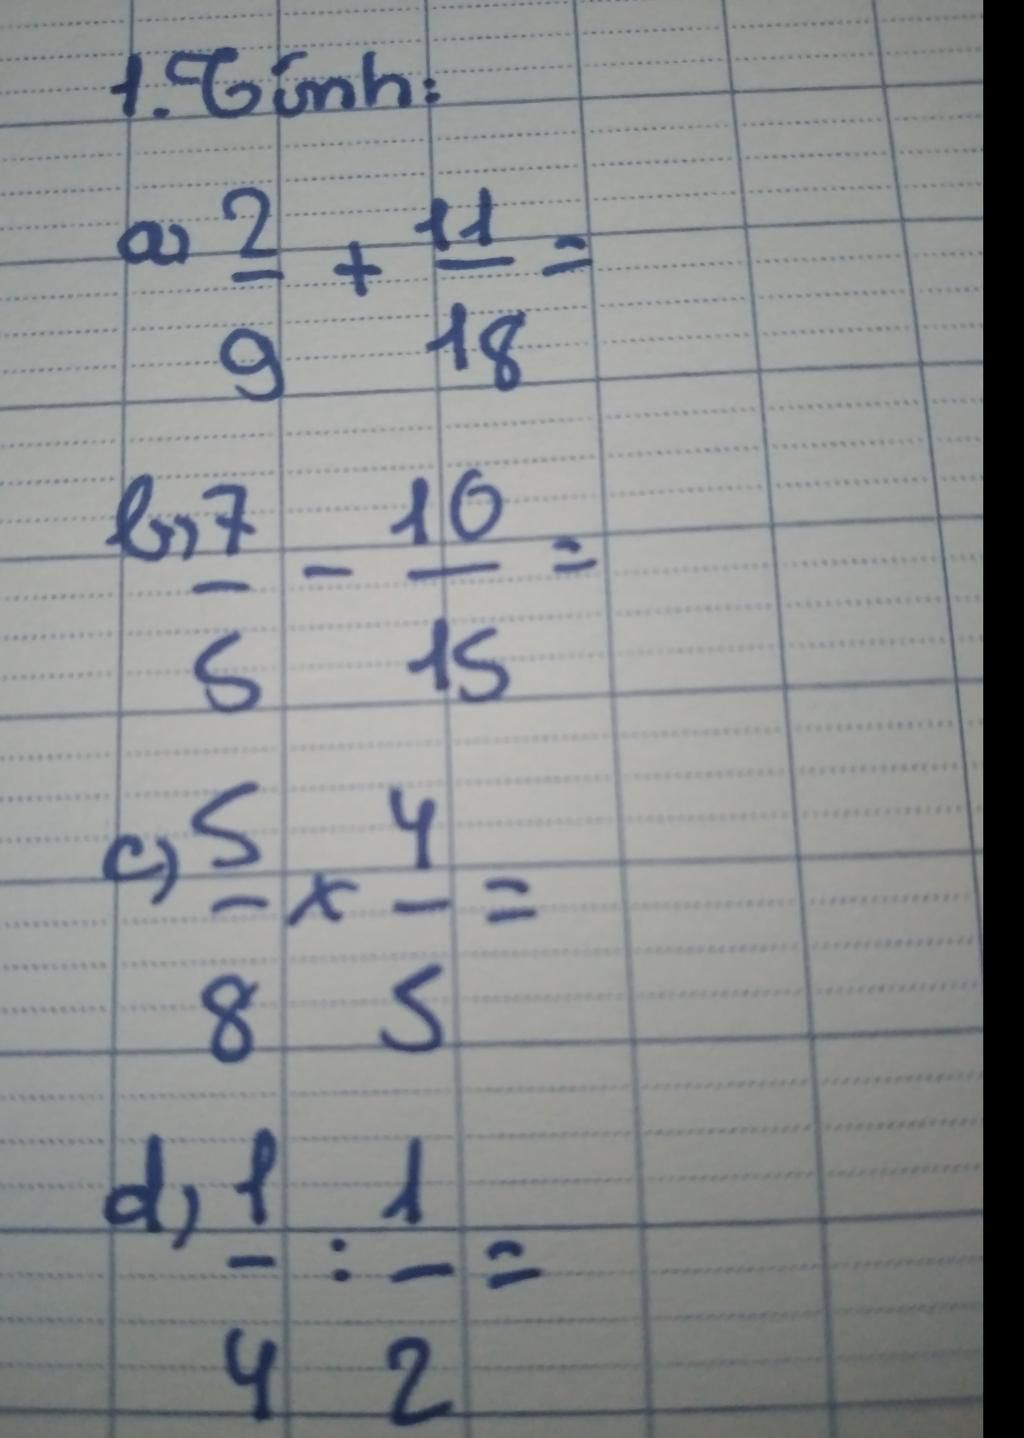 1. Tính:
a) 2/9 + 11/18 =
b) 7/5 - 10/15 =
c) 5/8 x 4/5 =
d) 1/4 : 1/2 =